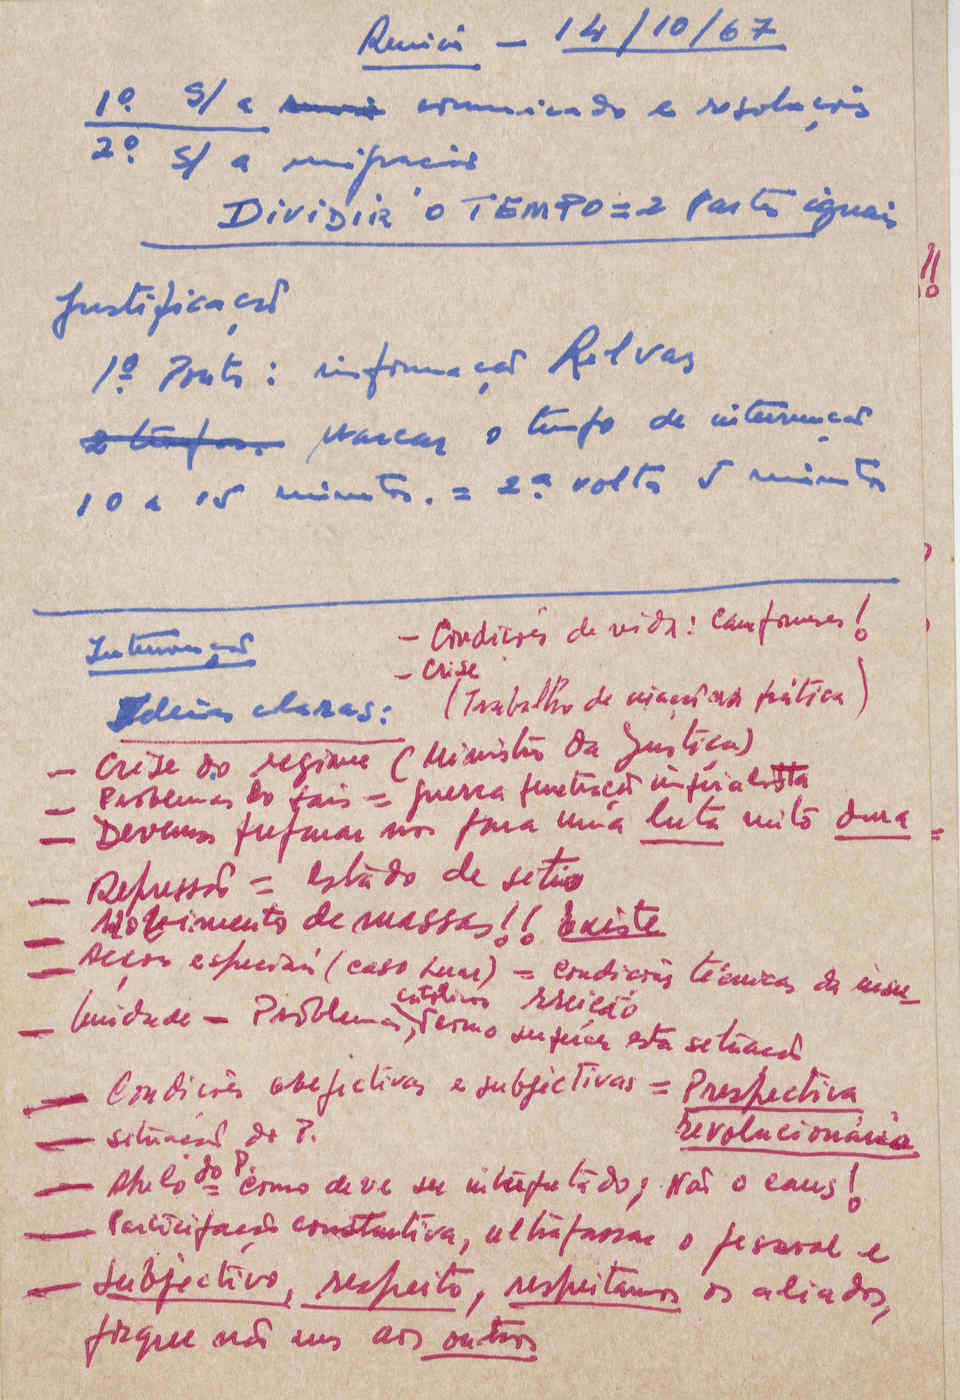 Reunião – 14/10/67
1º. S/ a comunicado e resolução
2º. S/ a migração
DIVIDIR O TEMPO = 2 Partes iguais
!!
Justificação
1º. Ponto: informação Relvas
Marcar o tempo de intervenção
10 a 15 minutos. = 2ª volta 5 minutos
Intervenção
– Condições de vida: camponeses!
– Crise
(Trabalho de na prática)
Ideias claras:
– Crise do regime (Ministro da Justiça)
– Problemas do país = guerra penetração imperialista
– Devemos preparar nos para uma luta muito dura =
– Repressão = Estado de sitio
– Movimento de massas!! Existe
– Acções especiais (caso Luar) = condições técnicas da insu-
rreição
– Unidade – Problemas católicos, Como superar esta situação
– Condições obejectivas e subjectivas = Prespectiva
revolucionária
– situação do P.
– Apelo do P. = Como deve ser interpretado; Não o caus!
– Participação constructiva, ultrapassar o pessoal e
– Subjectivo, respeito, respeitamos os aliados,
porque não nus aos outros